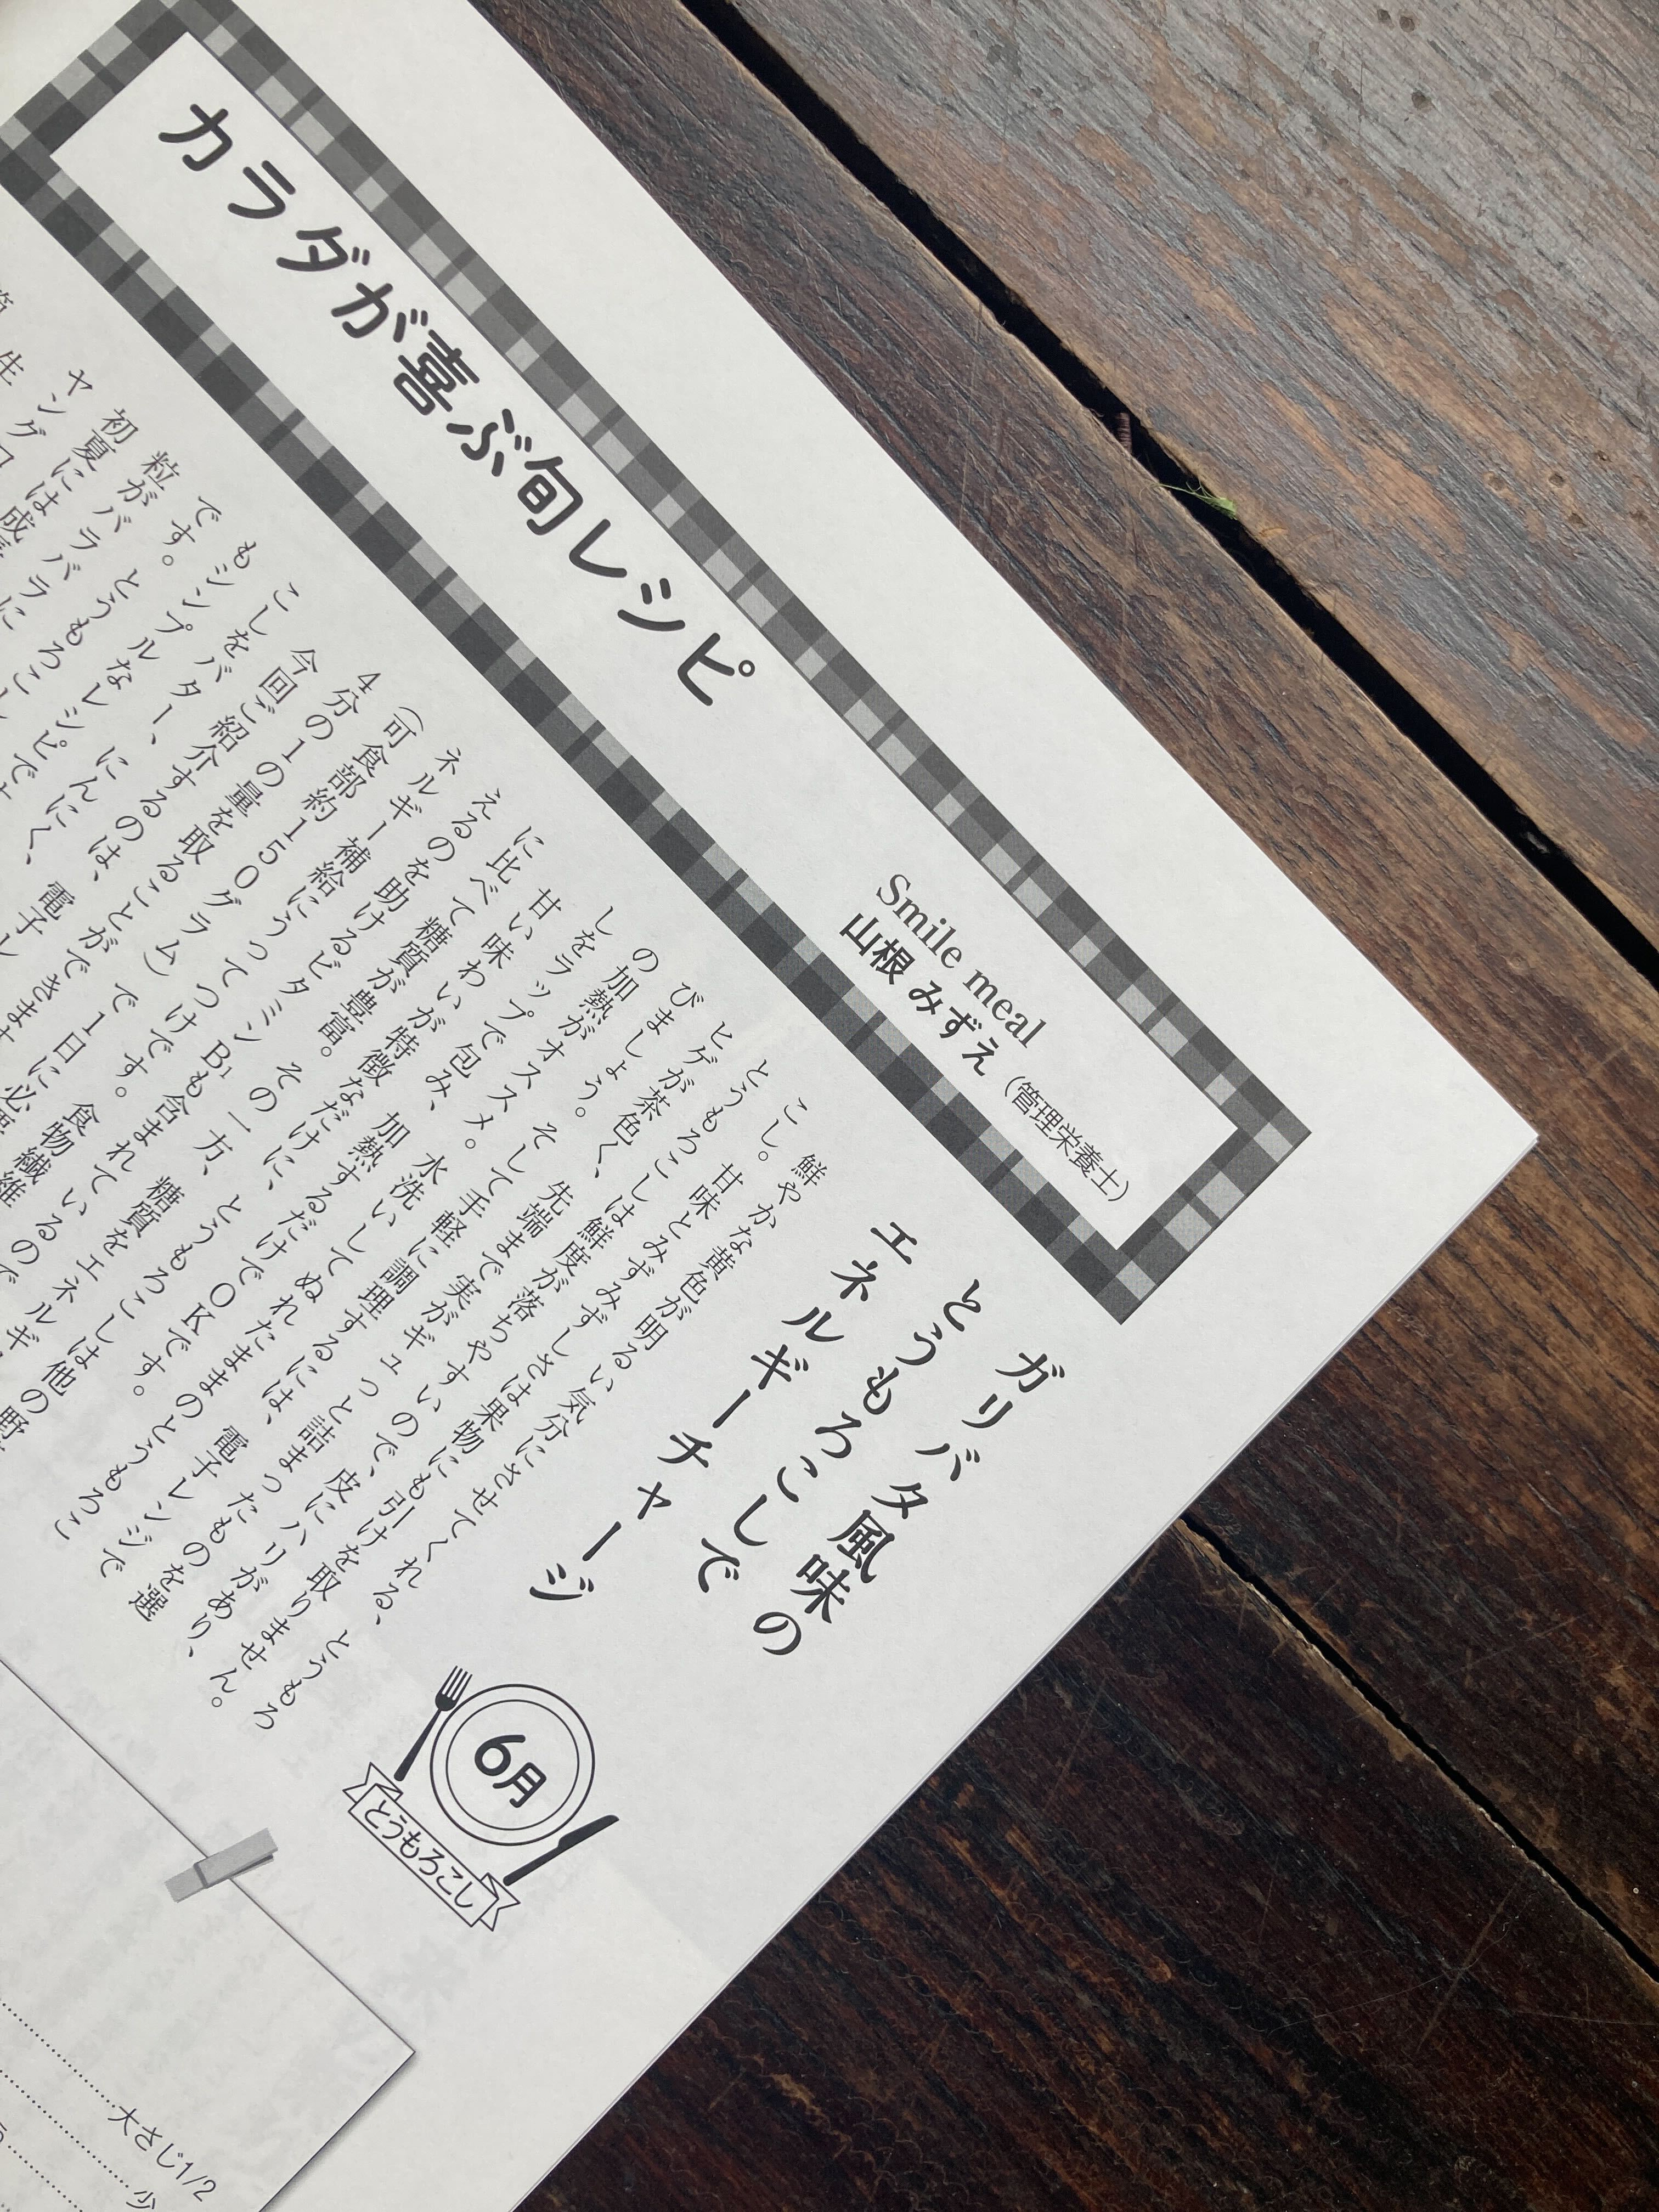 カラダが喜ぶ旬レシピ
Smile meal
山根 みずえ（管理栄養士）
ガリバタ風味の
とうもろこしで
エネルギーチャージ
6月
とうもろこし
鮮やかな黄色が明るい気分にさせてくれる、とうもろ
こし。甘味とみずみずしさは果物にも引けを取りません。
とうもろこしは鮮度が落ちやすいので、皮にハリがあり、
ヒゲが茶色く、先端まで実がギュっと詰まったものを選
びましょう。そして手軽に調理するには、電子レンジで
の加熱がオススメ。水洗いしてぬれたままのとうもろこ
しをラップで包み、加熱するだけでOKです。
甘い味わいが特徴なだけに、とうもろこしは他の野
に比べて糖質が豊富。その一方、糖質をエネルギ
えるのを助けるビタミンB₁も含まれているので
ネルギー補給にうってつけです。食物繊維
（可食部約150グラム）で1日に必要
4分の1の量を取ることができます
今回ご紹介するのは、電子レ
こしをバター、にんにく、
もシンプルなレシピです
です。とうもろこし
粒がバラバラに
初夏には成
ヤングコ
生
大さじ1/2
少